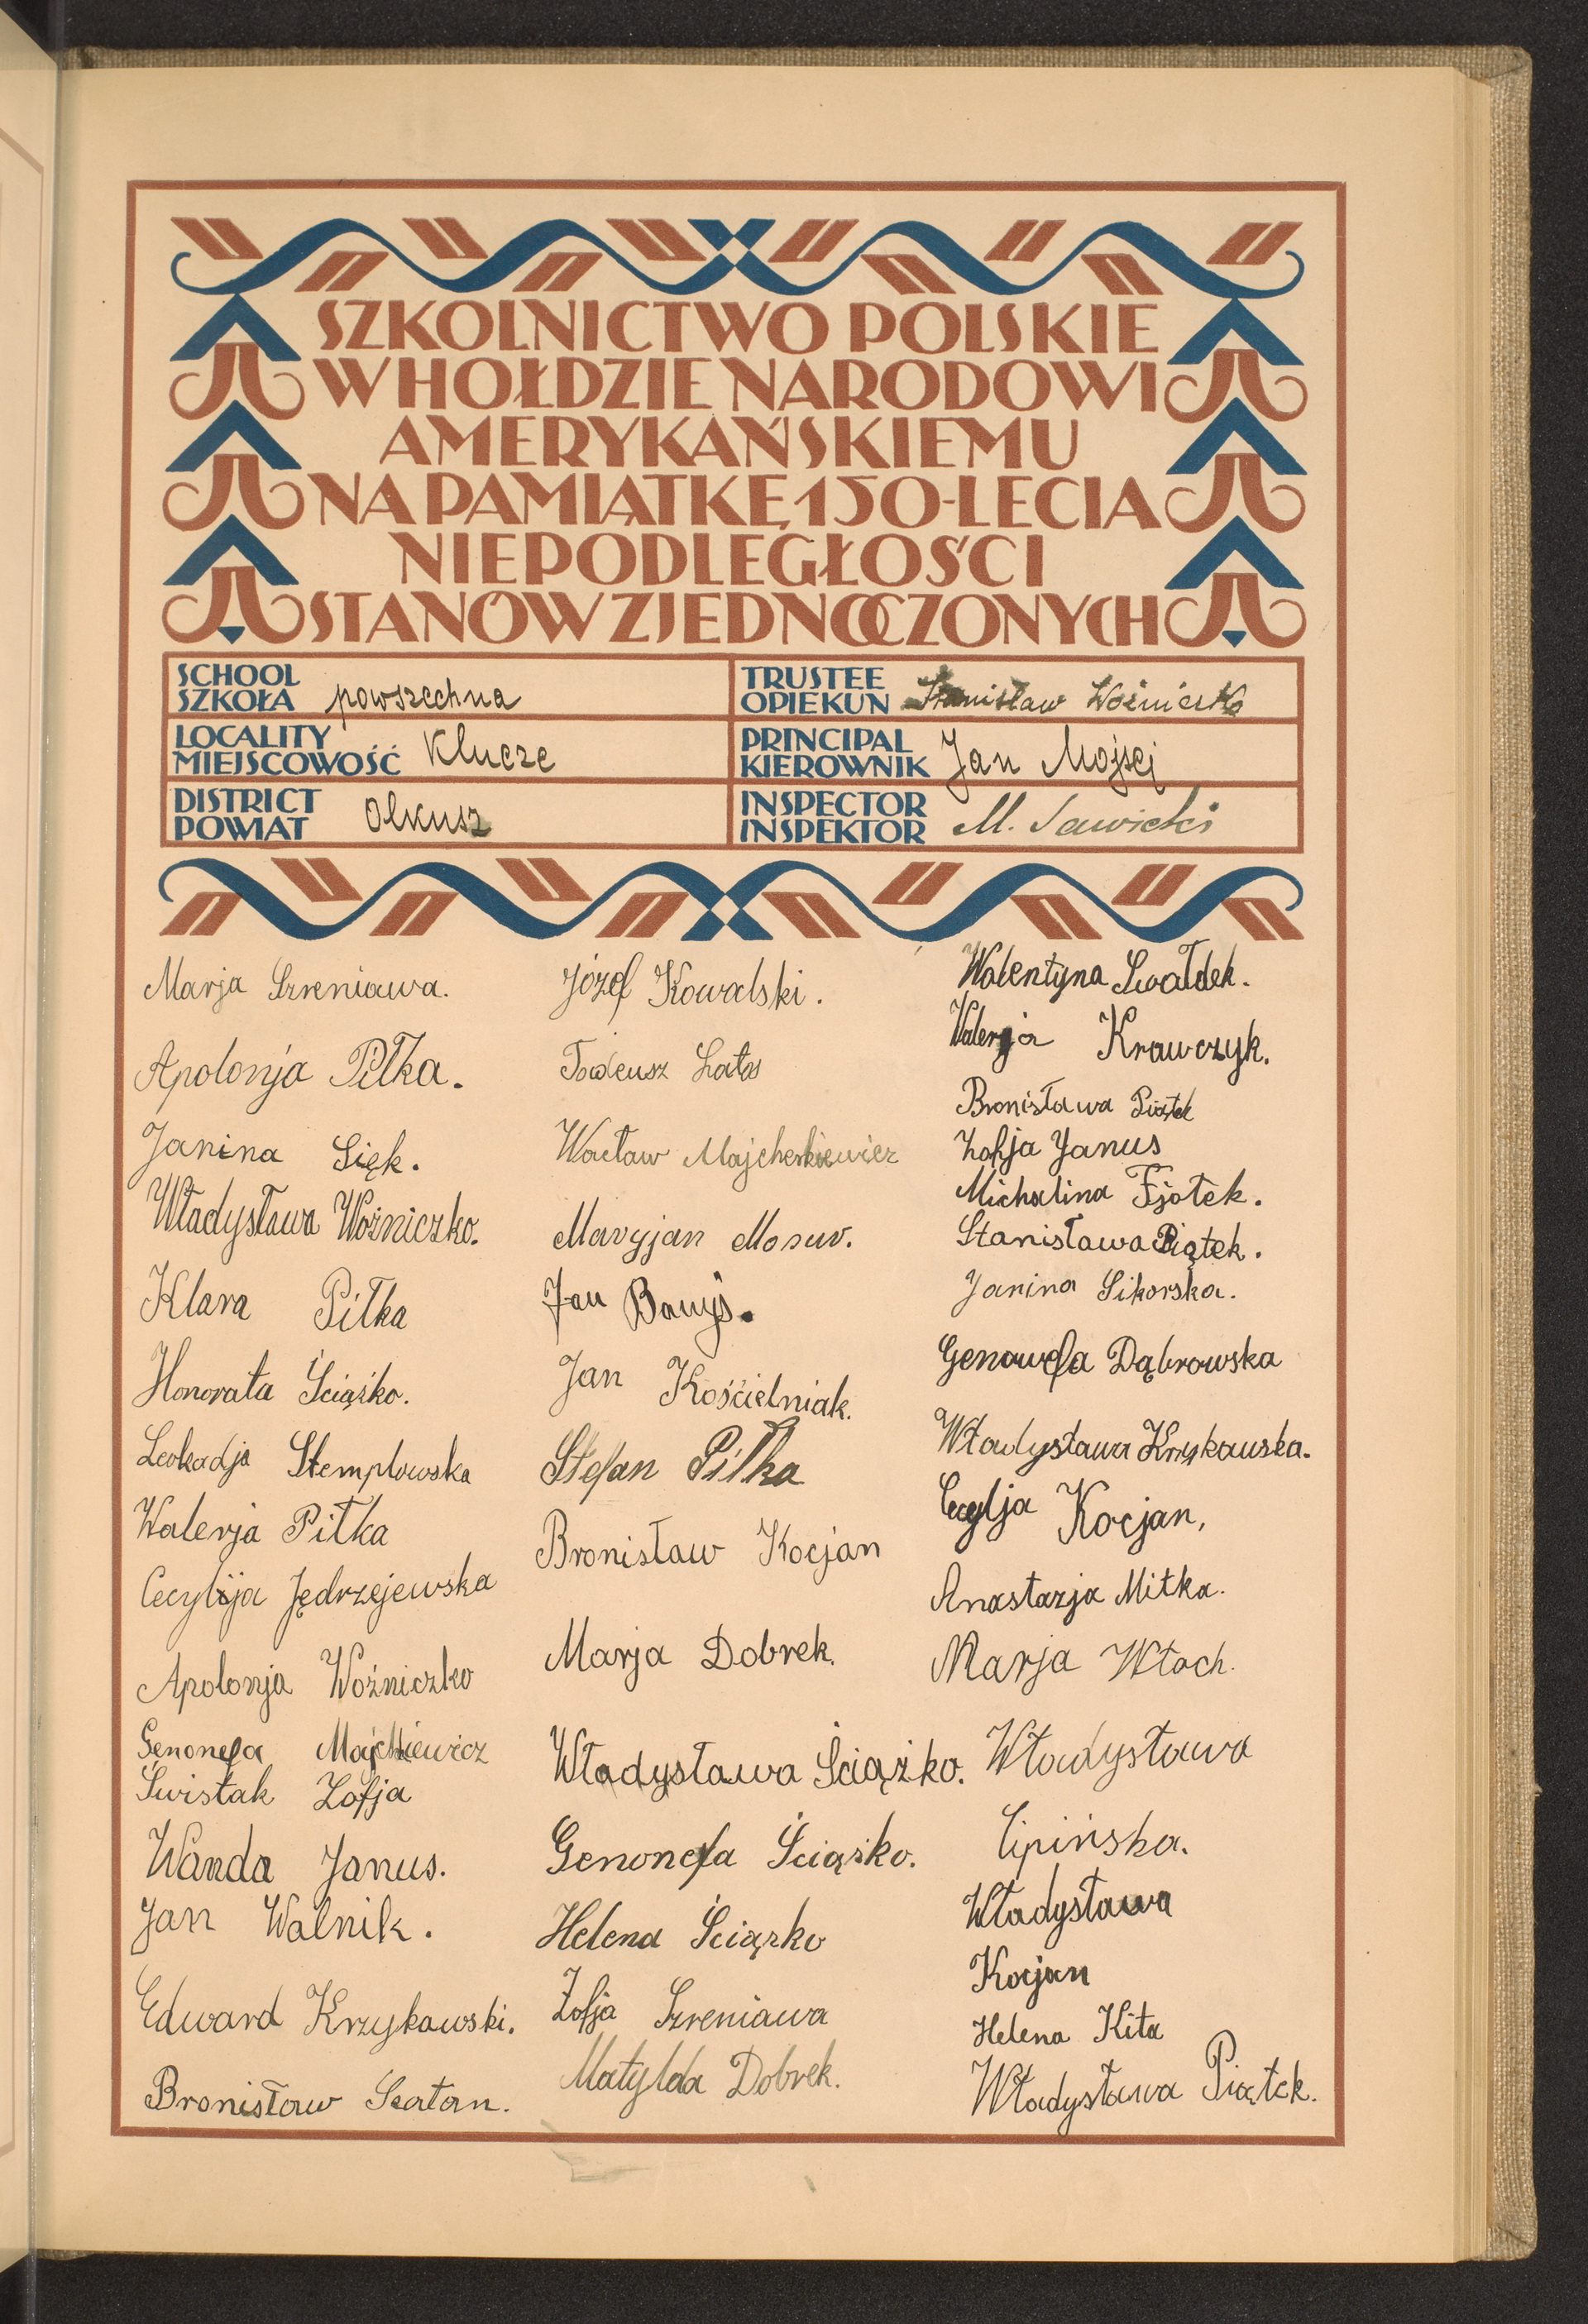 SZKOLNICTWO POLSKIE
W HOŁDZIE NARODOWI
AMERYKAŃSKIEMU
NA PAMIĄTKĘ 150-LECIA
NIEPODLEGŁOŚCI
STANÓW ZJEDNOCZONYCH
SCHOOL
SZKOŁA powszechna
TRUSTEE
OPIEKUN Stanisław Woźniczko
LOCALITY
MIEJSCOWOŚĆ Klucze
PRINCIPAL
KIEROWNIK Jan Mojsej
DISTRICT
POWIAT Olkusz
INSPECTOR
INSPEKTOR M. Sawicki
Marja Szreniawa.
Apolonja Piłka.
Janina Sięk.
Władysława Woźniczko.
Klara Piłka
Honorata Ściążko.
Leokadja Stemplowska
Walerja Piłka
Cecylija Jędrzejewska
Apolonja Woźniczko
Genonefa
Świstak Zofja
Wanda Janus.
Jan Walnik.
Edward Krzykawski.
Bronisław Szatan.
Józef Kowalski.
Tadeusz Latos
Wacław
Maryjan Mosur.
Jan Banyś.
Jan Kościelniak.
Stefan Piłka
Bronisław Kocjan
Marja Dobrek.
Władysława Ściążko.
Genonefa Ściążko.
Helena Ściążko
Zofja Szreniawa
Matylda Dobrek.
Walentyna Swałdek.
Walerja Krawczyk.
Bronisława Piątek
Zofja Janus
Michalina Fjołek.
Stanisława Piątek.
Janina Sikorska.
Genowefa Dąbrowska
Władysława Krzykawska.
Cecylja Kocjan,
Anastazja Mitka.
Marja Włoch.
Władysława
Lipińska.
Władysława
Kocjan
Helena Kita
Władysława Piątek.